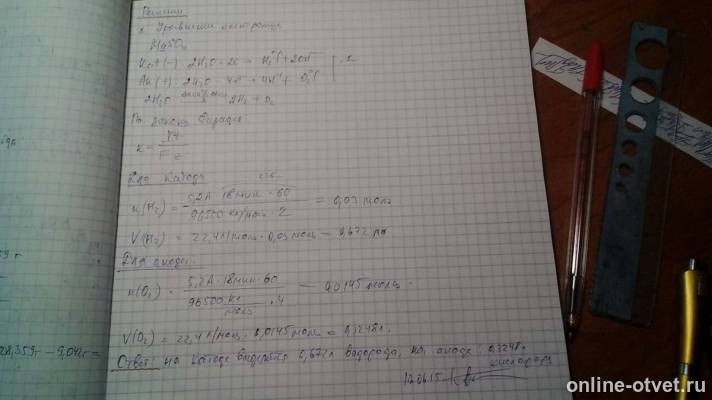 Решение
Уравнения электролиза
MgSO4
Kat(-) 2H2O + 2e → H2↑ + 2OH⁻ | 2
An(+) 2H2O - 4e → 4H⁺ + O2↑
2H2O электролиз 2H2 + O2
По закону Фарадея
n = It / Fz
Для катода
n(H2) = 5,2А·18мин·60 / 96500 Кл/моль·2 = 0,03 моль
V(H2) = 22,4 л/моль·0,03 моль = 0,672 л
Для анода
n(O2) = 5,2А·18мин·60 / 96500 Кл/моль·4 = 0,0145 моль
V(O2) = 22,4 л/моль·0,0145 моль = 0,3248 л
28,359г - 9,042г =
Ответ: на катоде выделится 0,672 л водорода, на аноде 0,3248 л
кислорода
12.06.15
online-otvet.ru